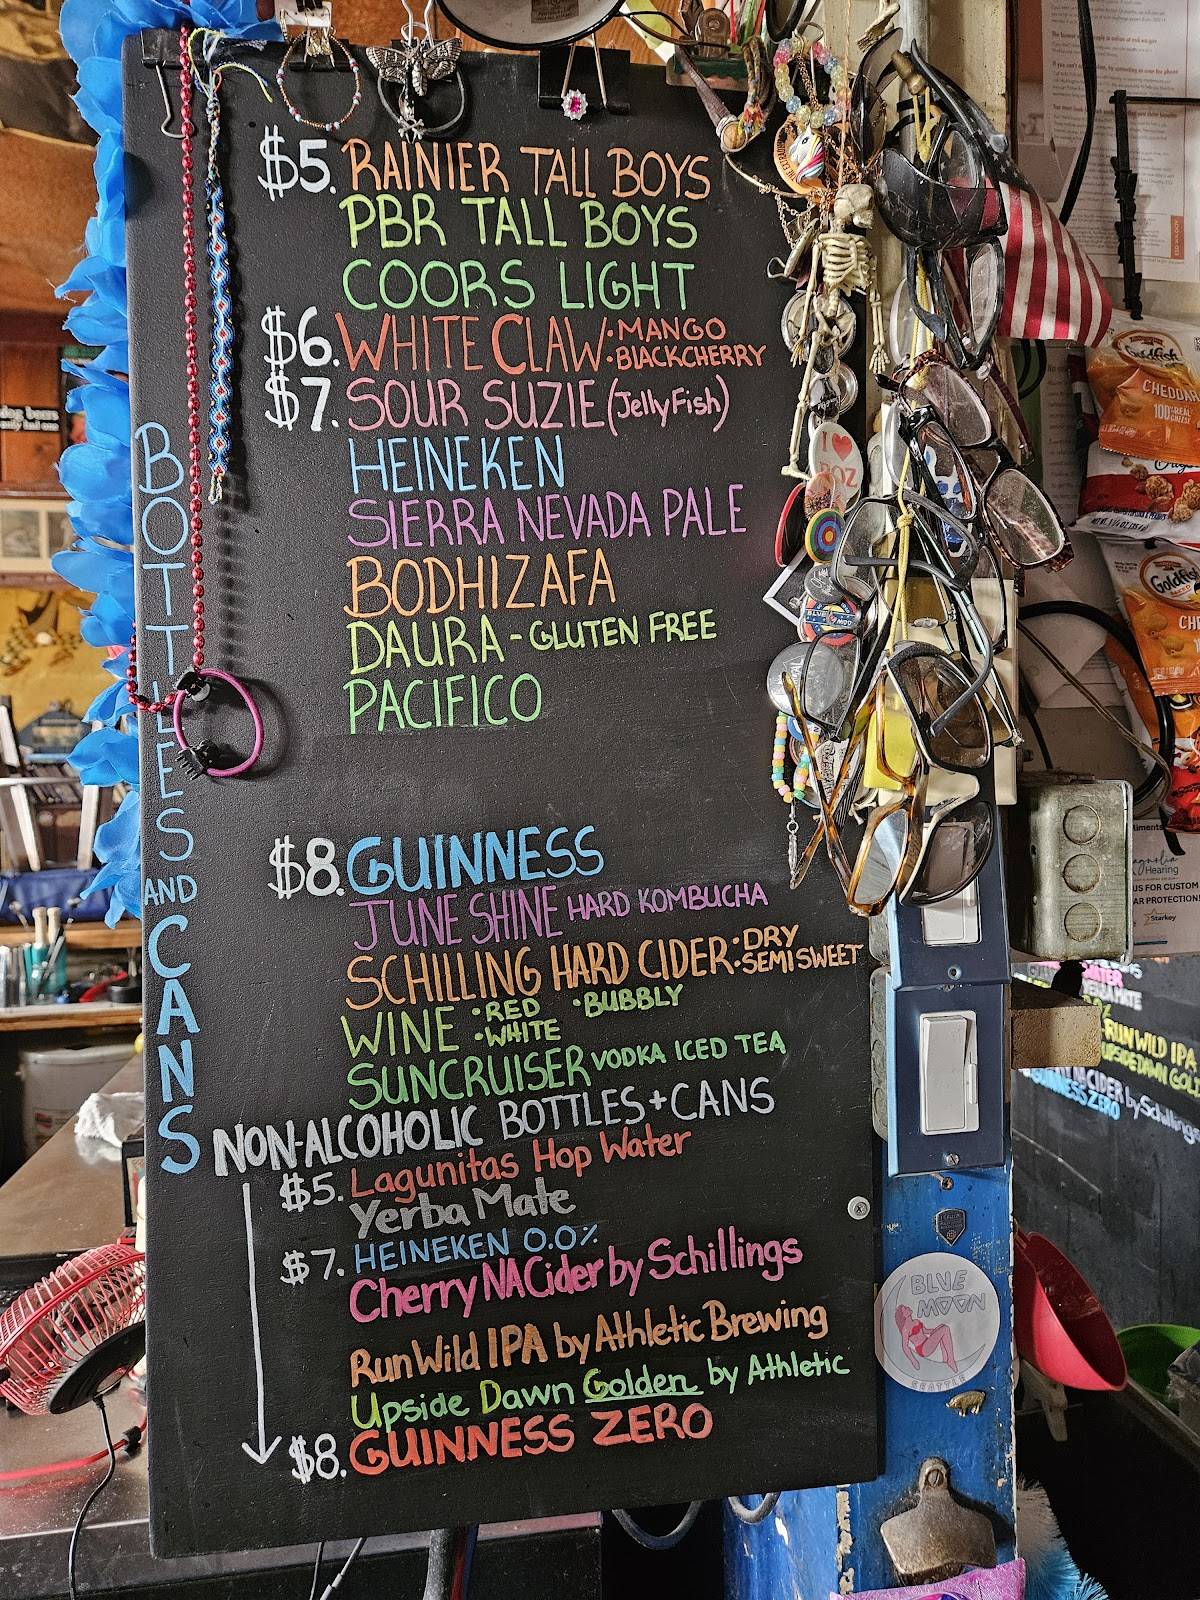 BOTTLES AND CANS
$5. RAINIER TALL BOYS
PBR TALL BOYS
COORS LIGHT
$6. WHITE CLAW • MANGO
• BLACKCHERRY
$7. SOUR SUZIE (JellyFish)
HEINEKEN
SIERRA NEVADA PALE
BODHIZAFA
DAURA - GLUTEN FREE
PACIFICO
$8. GUINNESS
JUNE SHINE HARD KOMBUCHA
SCHILLING HARD CIDER: • DRY
• SEMI SWEET
WINE • RED • BUBBLY
• WHITE
SUNCRUISER VODKA ICED TEA
NON-ALCOHOLIC BOTTLES + CANS
$5. Lagunitas Hop Water
Yerba Mate
$7. HEINEKEN 0.0%
Cherry NA Cider by Schillings
Run Wild IPA by Athletic Brewing
Upside Dawn Golden by Athletic
$8. GUINNESS ZERO
I ❤ BOZ
Goldfish
CHEDDAR
100% REAL CHEESE
Goldfish
Hearing
US FOR CUSTOM
AR PROTECTION!
Starkey
RUN WILD IPA
UPSIDE DAWN GOL
CIDER by Schillings
GUINNESS ZERO
BLUE
MOON
SEATTLE